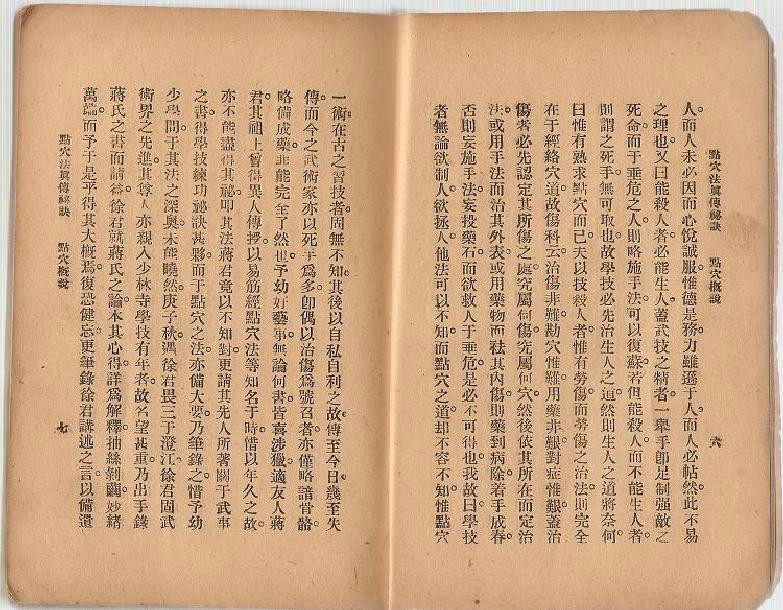 點穴法眞傳秘訣　點穴概說
六
人。而人未必因而心悅誠服。惟德是務。力雖遜于人。而人必帖然。此不易
之理也。又曰能殺人者。必能生人。蓋武技之精者。一舉手卽足制强敵之
死命。而于垂危之人。則略施手法。可以復蘇。若但能殺人。而不能生人者。
則謂之死手。無可取也。故學技必先治生人之道。然則生人之道將奈何。
曰惟有熟求點穴而已。夫以技殺人者。惟有勞傷。而勞傷之治法。則完全
在于經絡穴道。故傷科云。治傷非難。勘穴惟難。用藥非艱。對症惟艱。蓋治
傷者。必先認定其所傷之處。究屬何傷。究屬何穴。然後依其所在而定治
法。或用手法而治其外表。或用藥物而祛其內傷。則藥到病除。着手成春。
否則妄施手法。妄投藥石。而欲救人于垂危。是必不可得也。我故曰學技
者無論欲制人。欲拯人。他法可以不知。而點穴之道。却不容不知。惟點穴
一術。在古之習技者。固無不知。其後以自私自利之故。傳至今日。幾至失
傳。而今之武術家。亦以死手爲多。卽偶以治傷爲號召者。亦僅略諳骨骼。
略備成藥。非能完全了然也。予幼好藝事。無論何書。皆喜涉獵。適友人蔣
君。其祖上嘗得異人傳授。以易筋經點穴法等知名于時。惜以年久之故。
亦不能盡得其祕。叩其法。蔣君竟以不知對。更請其先人所著關于武事
之書。得學技練功祕訣甚夥。而于點穴之法。亦備大要。乃筆錄之。惜予幼
少學問。于其法之深奧。未能曉然。庚子秋。遇徐君畏三于澄江。徐君固武
術界之先進。其尊人亦親入少林寺學技有年者。故名望甚重。乃出手錄
蔣氏之書而請益。徐君就蔣氏之論。本其心得。詳爲解釋。抽絲剝繭。妙緒
萬端。而予于是乎得其大槪焉。復恐健忘。更筆錄徐君講述之言。以備遺
點穴法眞傳秘訣　點穴概說
七